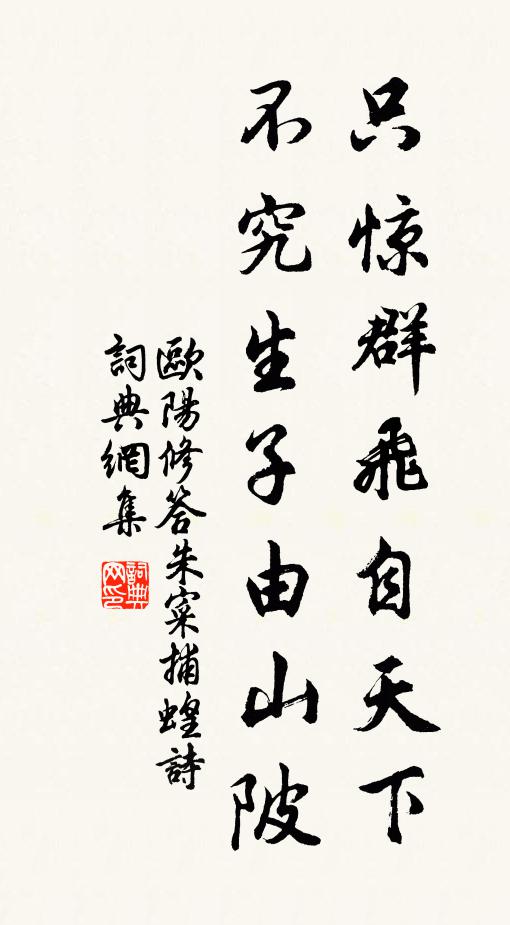 只惊群飛自天下
不究生子由山陂
歐陽修答朱寀捕蝗詩
詞典網集
詞典网印